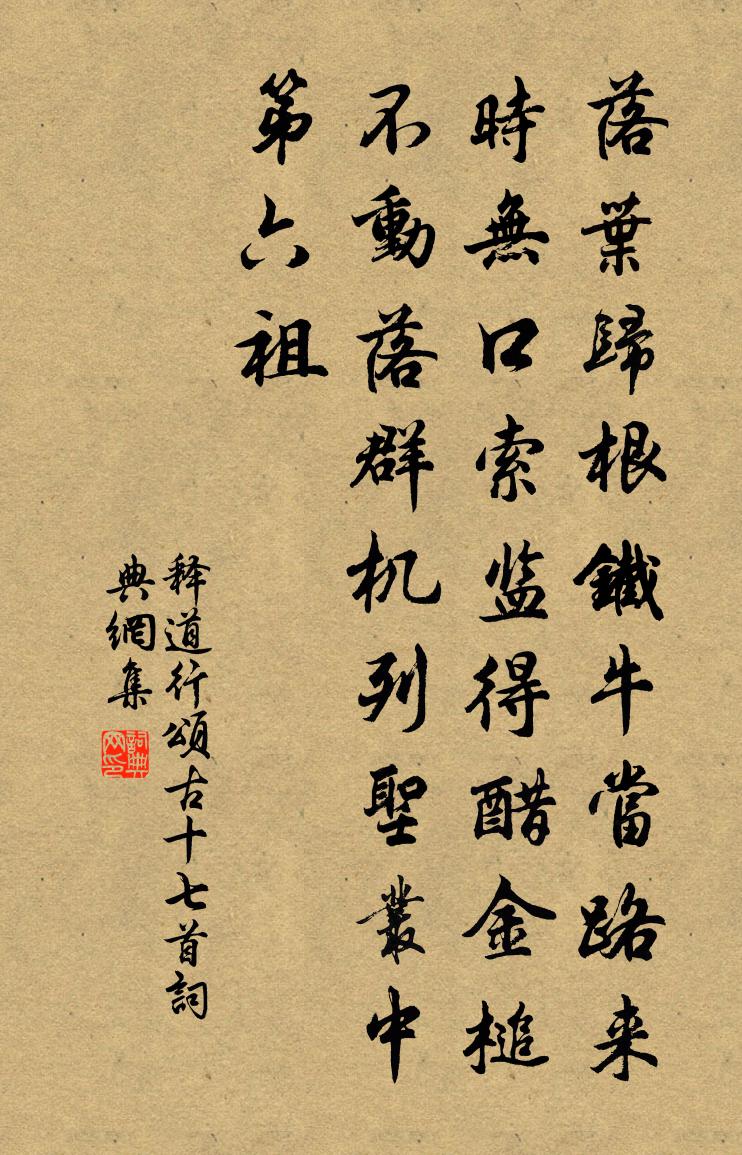 落葉歸根鐵牛當路来
時無口索監得醋金槌
不動落群机列聖叢中
第六祖
释道行頌古十七首詞
典網集
詞典网印